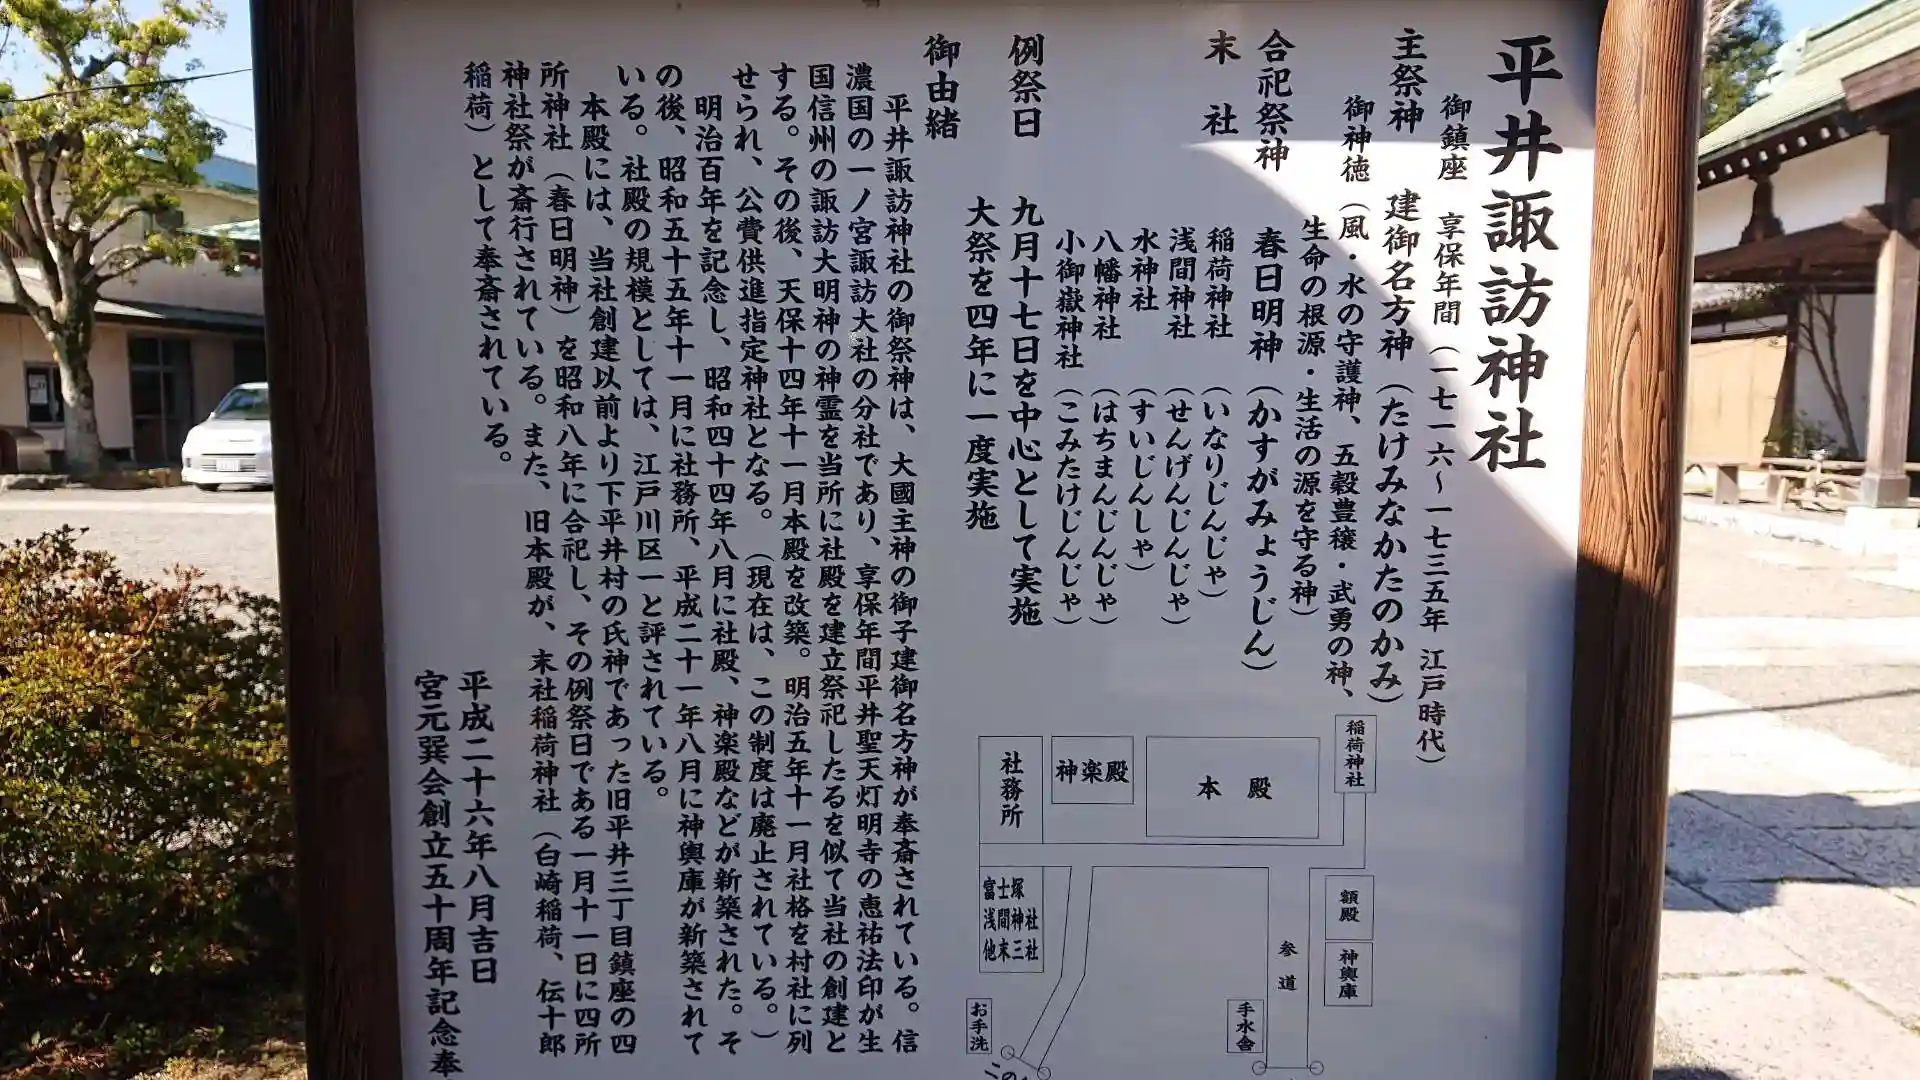 平井諏訪神社
御鎮座 享保年間(一七一六〜一七三五年 江戸時代)
主祭神 建御名方神(たけみなかたのかみ)
御神徳(風・水の守護神、五穀豊穣・武勇の神、
生命の根源・生活の源を守る神)
合祀祭神 春日明神(かすがみょうじん)
末 社 稲荷神社(いなりじんじゃ)
浅間神社(せんげんじんじゃ)
水神社(すいじんしゃ)
八幡神社(はちまんじんじゃ)
小御嶽神社(こみたけじんじゃ)
例祭日 九月十七日を中心として実施
大祭を四年に一度実施
御由緒
平井諏訪神社の御祭神は、大國主神の御子建御名方神が奉斎されている。信
濃国の一ノ宮諏訪大社の分社であり、享保年間平井聖天灯明寺の恵祐法印が生
国信州の諏訪大明神の神霊を当所に社殿を建立祭祀したるを似て当社の創建と
する。その後、天保十四年十一月本殿を改築。明治五年十一月社格を村社に列
せられ、公費供進指定神社となる。(現在は、この制度は廃止されている。)
明治百年を記念し、昭和四十四年八月に社殿、神楽殿などが新築された。そ
の後、昭和五十五年十一月に社務所、平成二十一年八月に神輿庫が新築されて
いる。社殿の規模としては、江戸川区一と評されている。
本殿には、当社創建以前より下平井村の氏神であった旧平井三丁目鎮座の四
所神社(春日明神)を昭和八年に合祀し、その例祭日である一月十一日に四所
神社祭が斎行されている。また、旧本殿が、末社稲荷神社(白崎稲荷、伝十郎
稲荷)として奉斎されている。
平成二十六年八月吉日
宮元巽会創立五十周年記念奉
稲荷神社
本 殿
神楽殿
社務所
富士塚
浅間神社
他末三社
額殿
神輿庫
参道
手水舎
お手洗